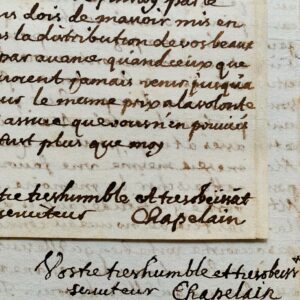 par le
dois de m'avoir mis en
la distribution de vos beaux
par avance quand ceux que
jamais venir jusqu'a
le mesme prix a la volonté
assure que vous n'en pouviés
plus que moy
tre treshumble et tresobeissāt
seruiteur Chapelain
Vostre treshumble et tresobeissᵗ
seruiteur Chapelain